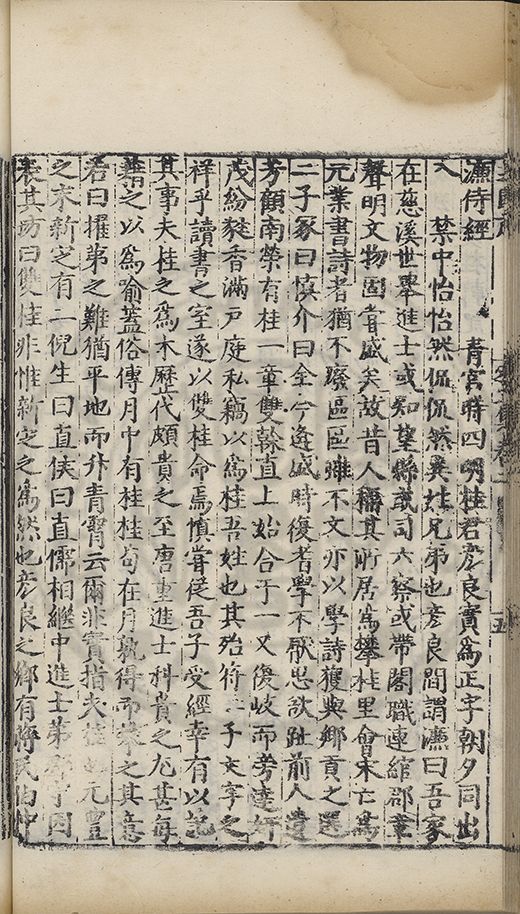 濂侍經
青宮時四明桂君彥良實爲正字朝夕同出
入
禁中怡怡然侃侃然異姓兄弟也彥良間謂濂曰吾家
在慈溪世舉進士或知望縣或司六察或帶閣職連綰郡章
聲明文物固嘗盛矣故昔人稱其所居爲攀桂里會宋亡爲
元業書詩者猶不廢區區雖不文亦以學詩獲與鄉貢之選
二子冢曰慎介曰全今逢盛時復耆學不厭思欲趾前人遺
芳顧南榮有桂一章雙榦直上始合于一又復岐而旁達奸
茂紛敷香滿戶庭私竊以爲桂吾姓也其殆符二子文字之
祥乎讀書之室遂以雙桂命焉慎嘗從吾子受經幸有以記
其事夫桂之爲木歷代頗貴之至唐重進士科貴之尤甚每
藉之以爲喻蓋俗傳月中有桂桂苟在月孰得而攀之其意
若曰擢第之難猶平地而升青霄云爾非實指夫桂也元豐
之末新定有二倪生曰直侯曰直儒相繼中進士第守因
表其坊曰雙桂非惟新定之爲然也彥良之鄉有蔣氏伯仲
五